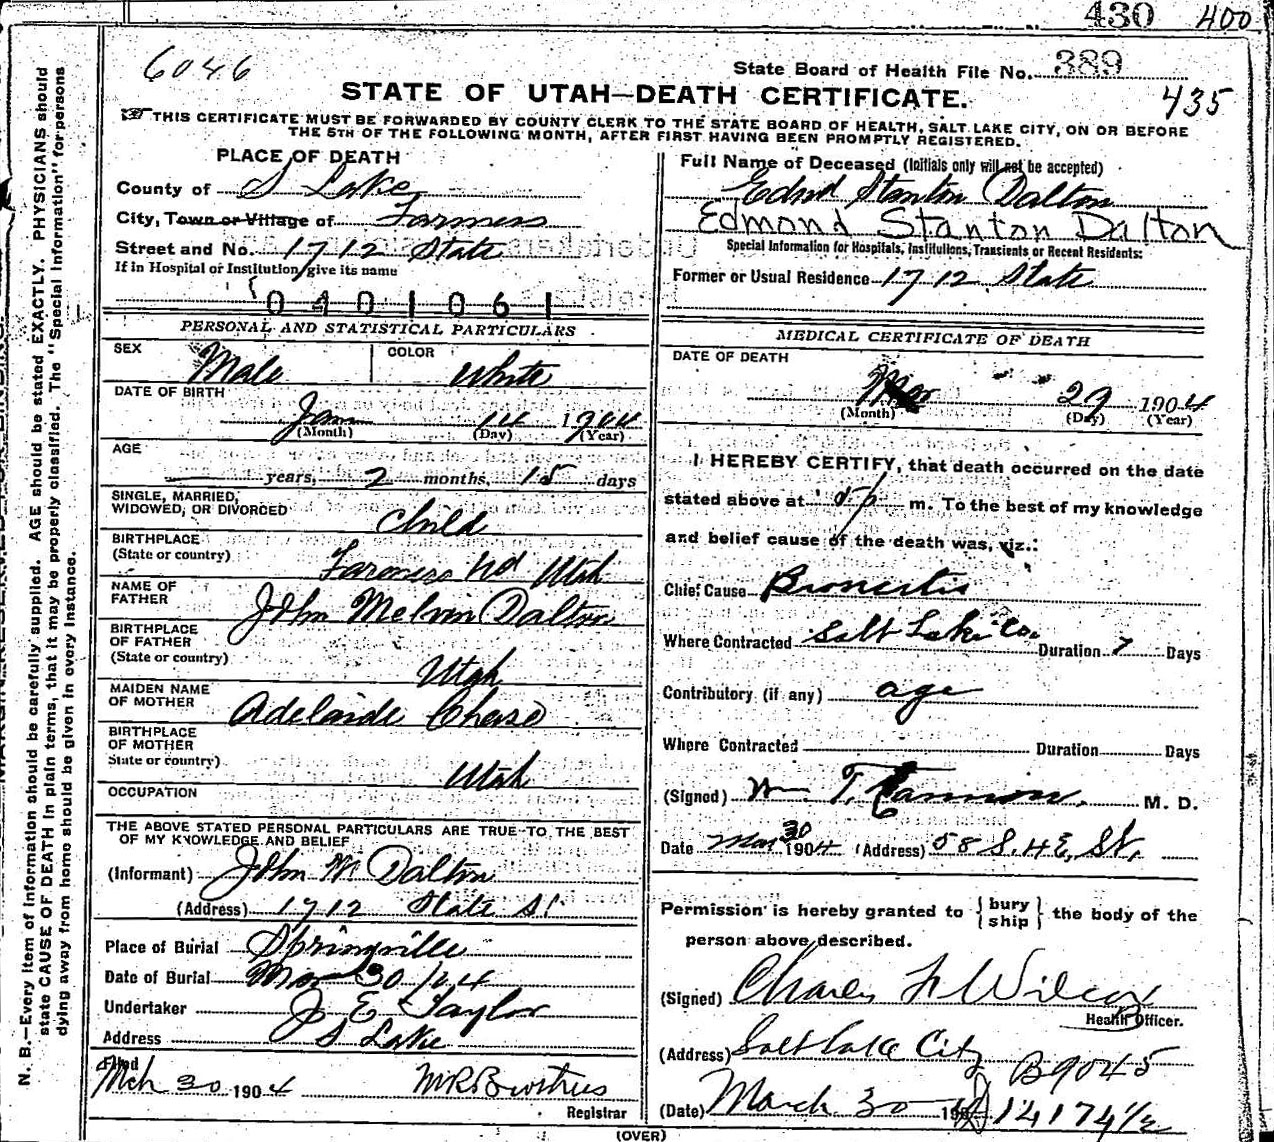 430 400
6046
State Board of Health File No. 389
STATE OF UTAH—DEATH CERTIFICATE. 435
THIS CERTIFICATE MUST BE FORWARDED BY COUNTY CLERK TO THE STATE BOARD OF HEALTH, SALT LAKE CITY, ON OR BEFORE
THE 5TH OF THE FOLLOWING MONTH, AFTER FIRST HAVING BEEN PROMPTLY REGISTERED.
PLACE OF DEATH
County of S Lake
City, Town or Village of Farmers
Street and No. 1712 State
If in Hospital or Institution give its name
0401061
Full Name of Deceased (Initials only will not be accepted)
Edmd Stanton Dalton
Edmond Stanton Dalton
Special Information for Hospitals, Institutions, Transients or Recent Residents:
Former or Usual Residence 1712 State
PERSONAL AND STATISTICAL PARTICULARS
SEX Male COLOR White
DATE OF BIRTH
Jan 14 1904
(Month) (Day) (Year)
AGE
years, 2 months, 15 days
SINGLE, MARRIED,
WIDOWED, OR DIVORCED Child
BIRTHPLACE
(State or country) Farmers Wd Utah
NAME OF
FATHER John Melvin Dalton
BIRTHPLACE
OF FATHER
(State or country) Utah
MAIDEN NAME
OF MOTHER Adelaide Chase
BIRTHPLACE
OF MOTHER
State or country) Utah
OCCUPATION
THE ABOVE STATED PERSONAL PARTICULARS ARE TRUE TO THE BEST
OF MY KNOWLEDGE AND BELIEF
(Informant) John M Dalton
(Address) 1712 State St
Place of Burial Springville
Date of Burial Mar 30 / 04
Undertaker J E Taylor
Address S Lake
Filed
Mch 30 1904
Registrar
MEDICAL CERTIFICATE OF DEATH
DATE OF DEATH
Mar 29 1904
(Month) (Day) (Year)
I HEREBY CERTIFY, that death occurred on the date
stated above at p m. To the best of my knowledge
and belief cause of the death was, viz.:
Chief Cause Broncitis
Where Contracted Salt Lake Co. Duration 7 Days
Contributory (if any) age
Where Contracted Duration Days
(Signed) Wm T. Cannon. M. D.
Date Mar 30 1904 (Address) 58 S. 4 E. St.
Permission is hereby granted to { bury
ship } the body of the
person above described.
(Signed) Charles F Wilcox
Health Officer.
(Address) Salt Lake City
B9045
(Date) March 30 190
14174 1/2
(OVER)
N. B.—Every item of information should be carefully supplied. AGE should be stated EXACTLY. PHYSICIANS should
state CAUSE OF DEATH in plain terms, that it may be properly classified. The "Special Information" for persons
dying away from home should be given in every instance.